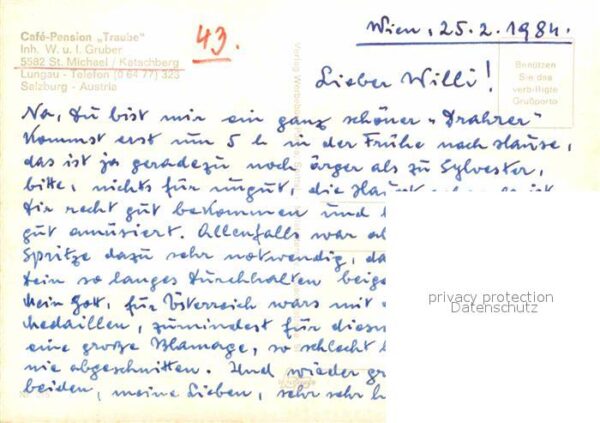 Café-Pension „Traube"
Inh. W. u. I. Gruber
5582 St. Michael / Katschberg
Lungau - Telefon (0 64 77) 323
Salzburg - Austria
43.
Wien, 25.2.1984.
Benützen
Sie das
verbilligte
Grußporto
Lieber Willi!
Na, Du bist mir ein ganz schöner "Drahrer"
Kommst erst um 5 h in der Frühe nach Hause,
das ist ja geradezu noch ärger als zu Sylvester,
bitte, nichts für ungut, die Haupt ist
Dir recht gut bekommen und
gut amüsiert. Allenfalls war
Spritze dazu sehr notwendig, da
Dein so langes Durchhalten beige
Mein Gott, für Österreich wars mit
Medaillen, zumindest für diesm
eine große Blamage, so schlecht
nie abgeschnitten. Und wieder gr
beiden, meine Lieben, sehr sehr h
privacy protection
Datenschutz